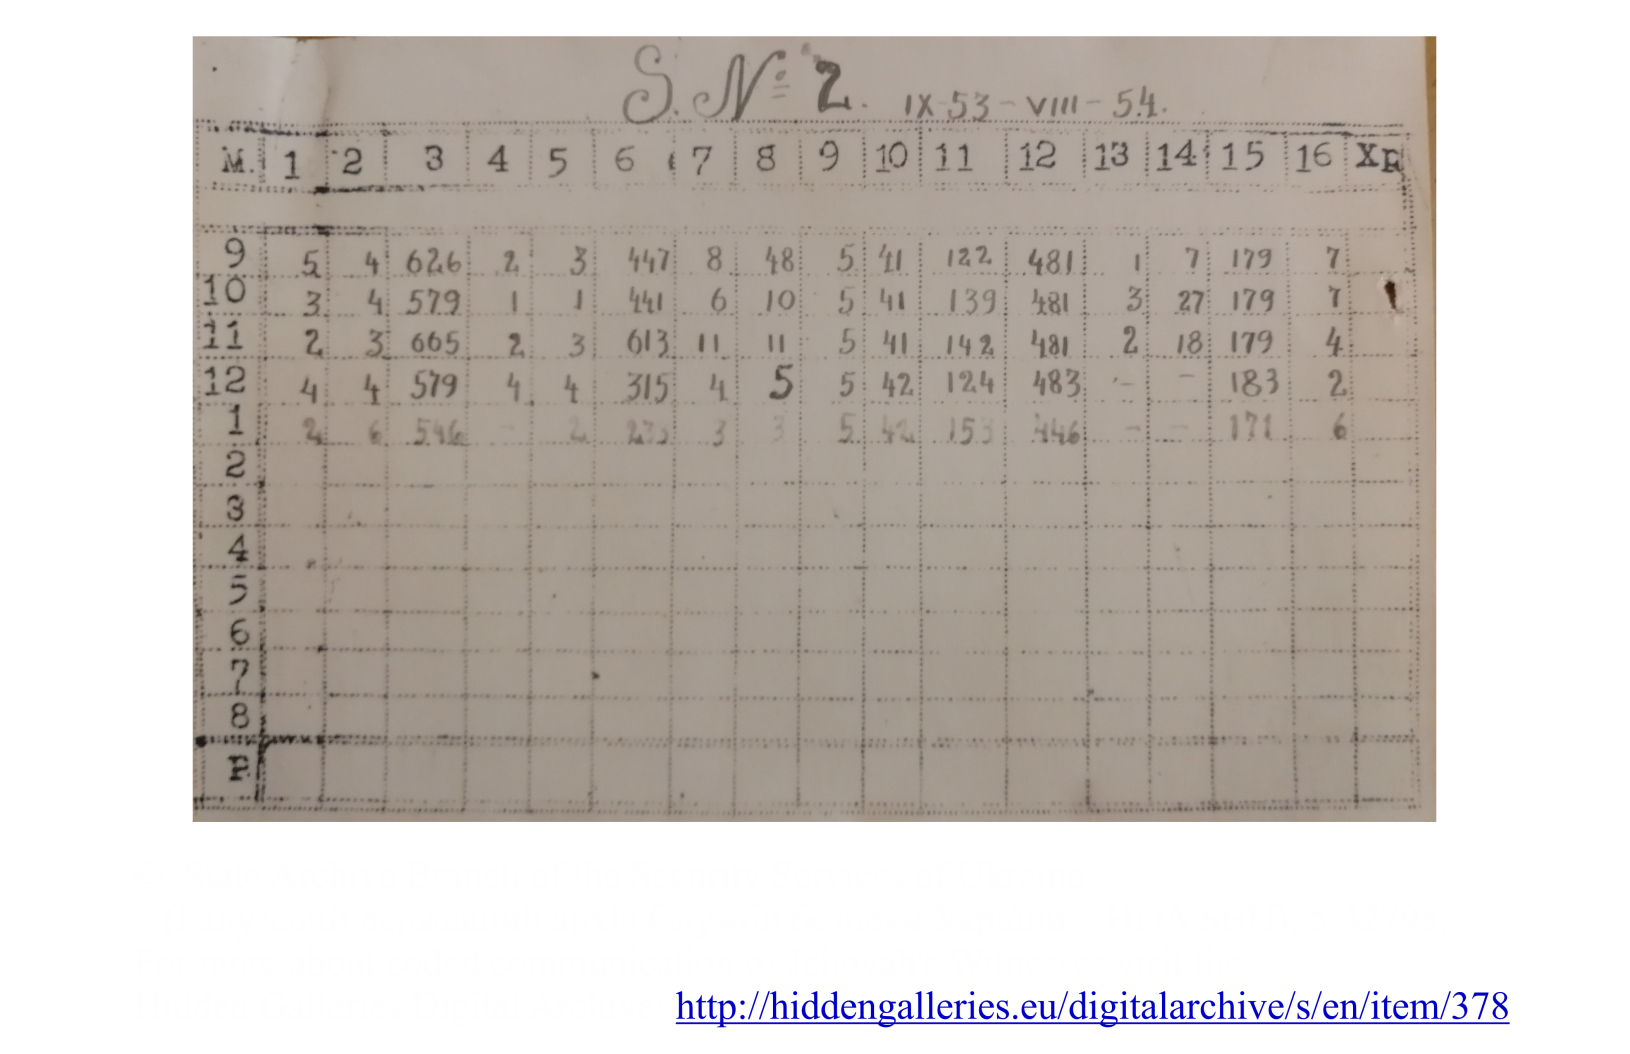 S. № 2. IX-53-VIII-54.
M. 1 2 3 4 5 6 7 8 9 10 11 12 13 14 15 16 Xp
9 5 4 626 2 3 447 8 48 5 41 122 481 1 7 179 7
10 3 4 579 1 1 441 6 10 5 41 139 481 3 27 179 7
11 2 3 665 2 3 613 11 11 5 41 142 481 2 18 179 4
12 4 4 579 4 4 315 4 5 5 42 124 483 - - 183 2
1 2 6 546 - 2 3 3 5 42 153 446 - - 171 6
2
3
4
5
6
7
8
http://hiddengalleries.eu/digitalarchive/s/en/item/378